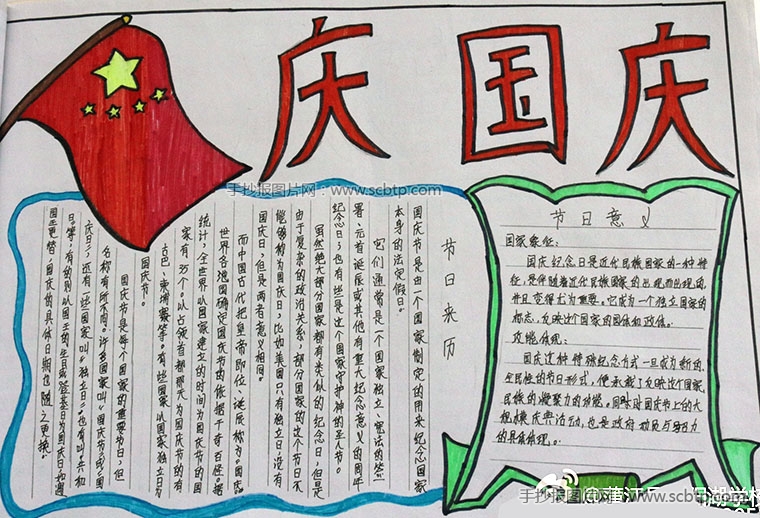 庆国庆
手抄报图片网：www.scbtp.com
节日来历
国庆节是由一个国家制定的用来纪念国家
本身的法定假日。
它们通常是这个国家独立、宪法的签
署、元首诞辰或其他有重大纪念意义的周年
纪念日；也有些是这个国家守护神的圣人节。
虽然绝大部分国家都有类似的纪念日，但是
由于复杂的政治关系，部分国家的这个节日不
能够称为国庆日，比如美国只有独立日，没有
国庆日，但是两者意义相同。
而中国古代把皇帝即位、诞辰称为"国庆"
世界各地国确定国庆节的依据千奇百怪。据
统计，全世界以国家建立的时间为国庆节的国
家有35个。以占领首都那天为国庆节的有
古巴、柬埔寨等。有些国家以国家独立日为
国庆节。
国庆节是每个国家的重要节日，但
名称有所不同。许多国家叫"国庆节"或"国
庆日"，还有一些国家叫"独立日"。也有叫"共和
日"等，有的则以国王的生日或登基日为国庆日，如遇
国王更替，国庆的具体日期也随之更换。
节日意义
国家象征：
国庆纪念日是近代民族国家的一种特
征，是伴随着近代民族国家的出现而出现的，
并且变得尤为重要。它成为一个独立国家的
标志，反映这个国家的国体和政体。
功能体现：
国庆这种特殊纪念方式一旦成为新的、
全民性的节日形式，便承载了反映这个国家、
民族的凝聚力的功能。同时对国庆节上的大
规模庆典活动，也是政府动员与号召力
的具体体现。
手抄报图片网：www.scbtp.com